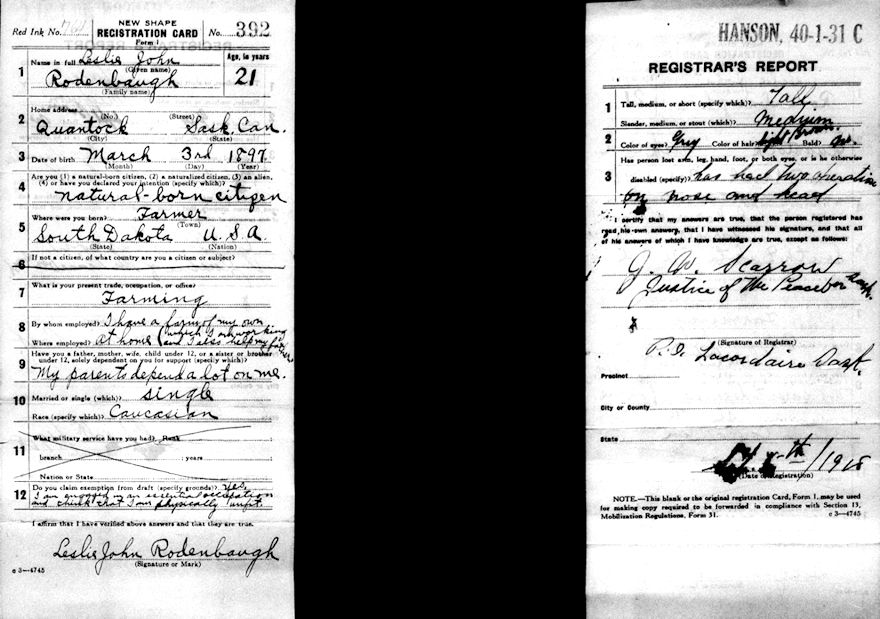 NEW SHAPE
Red Ink No. REGISTRATION CARD No. 392
Form 1
1 Name in full Leslie John Age, in years
(Given name)
Rodenbaugh 21
(Family name)
2 Home address
(No.) (Street)
Quantock Sask. Can.
(City) (State)
3 Date of birth March 3rd 1897
(Month) (Day) (Year)
Are you (1) a natural-born citizen, (2) a naturalized citizen, (3) an alien,
4 (4) or have you declared your intention (specify which)?
natural-born citizen
Where were you born? Farmer
5 (Town)
South Dakota U.S.A
(State) (Nation)
6 If not a citizen, of what country are you a citizen or subject?
7 What is your present trade, occupation, or office?
Farming
8 By whom employed? I have a farm of my own
which I am working
Where employed? at home and I also help my father
9 Have you a father, mother, wife, child under 12, or a sister or brother
under 12, solely dependent on you for support (specify which)?
My parents depend a lot on me.
10 Married or single (which)? single
Race (specify which)? Caucasian
What military service have you had? Rank ;
11 branch ; years ;
Nation or State
12 Do you claim exemption from draft (specify grounds)? Yes,
I am engaged in an essential occupation
and think that I am physically unfit.
I affirm that I have verified above answers and that they are true.
Leslie John Rodenbaugh
(Signature or Mark)
c 3—4745
HANSON, 40-1-31 C
REGISTRAR'S REPORT
1 Tall, medium, or short (specify which)? Tall
Slender, medium, or stout (which)? Medium
2 Color of eyes? Grey Color of hair? light Brown Bald? no.
Has person lost arm, leg, hand, foot, or both eyes, or is he otherwise
3 disabled (specify)? has had two operation
on nose and head
I certify that my answers are true, that the person registered has
read his own answers, that I have witnessed his signature, and that all
of his answers of which I have knowledge are true, except as follows:
J. W. Scarrow
Justice of the Peace for Sask.
(Signature of Registrar)
P.O. Lacordaire Sask.
Precinct
City or County
State
th/1918
(Date of Registration)
NOTE.—This blank or the original registration Card, Form 1, may be used
for making copy required to be forwarded in compliance with Section 13,
Mobilization Regulations, Form 31. c 3—4745